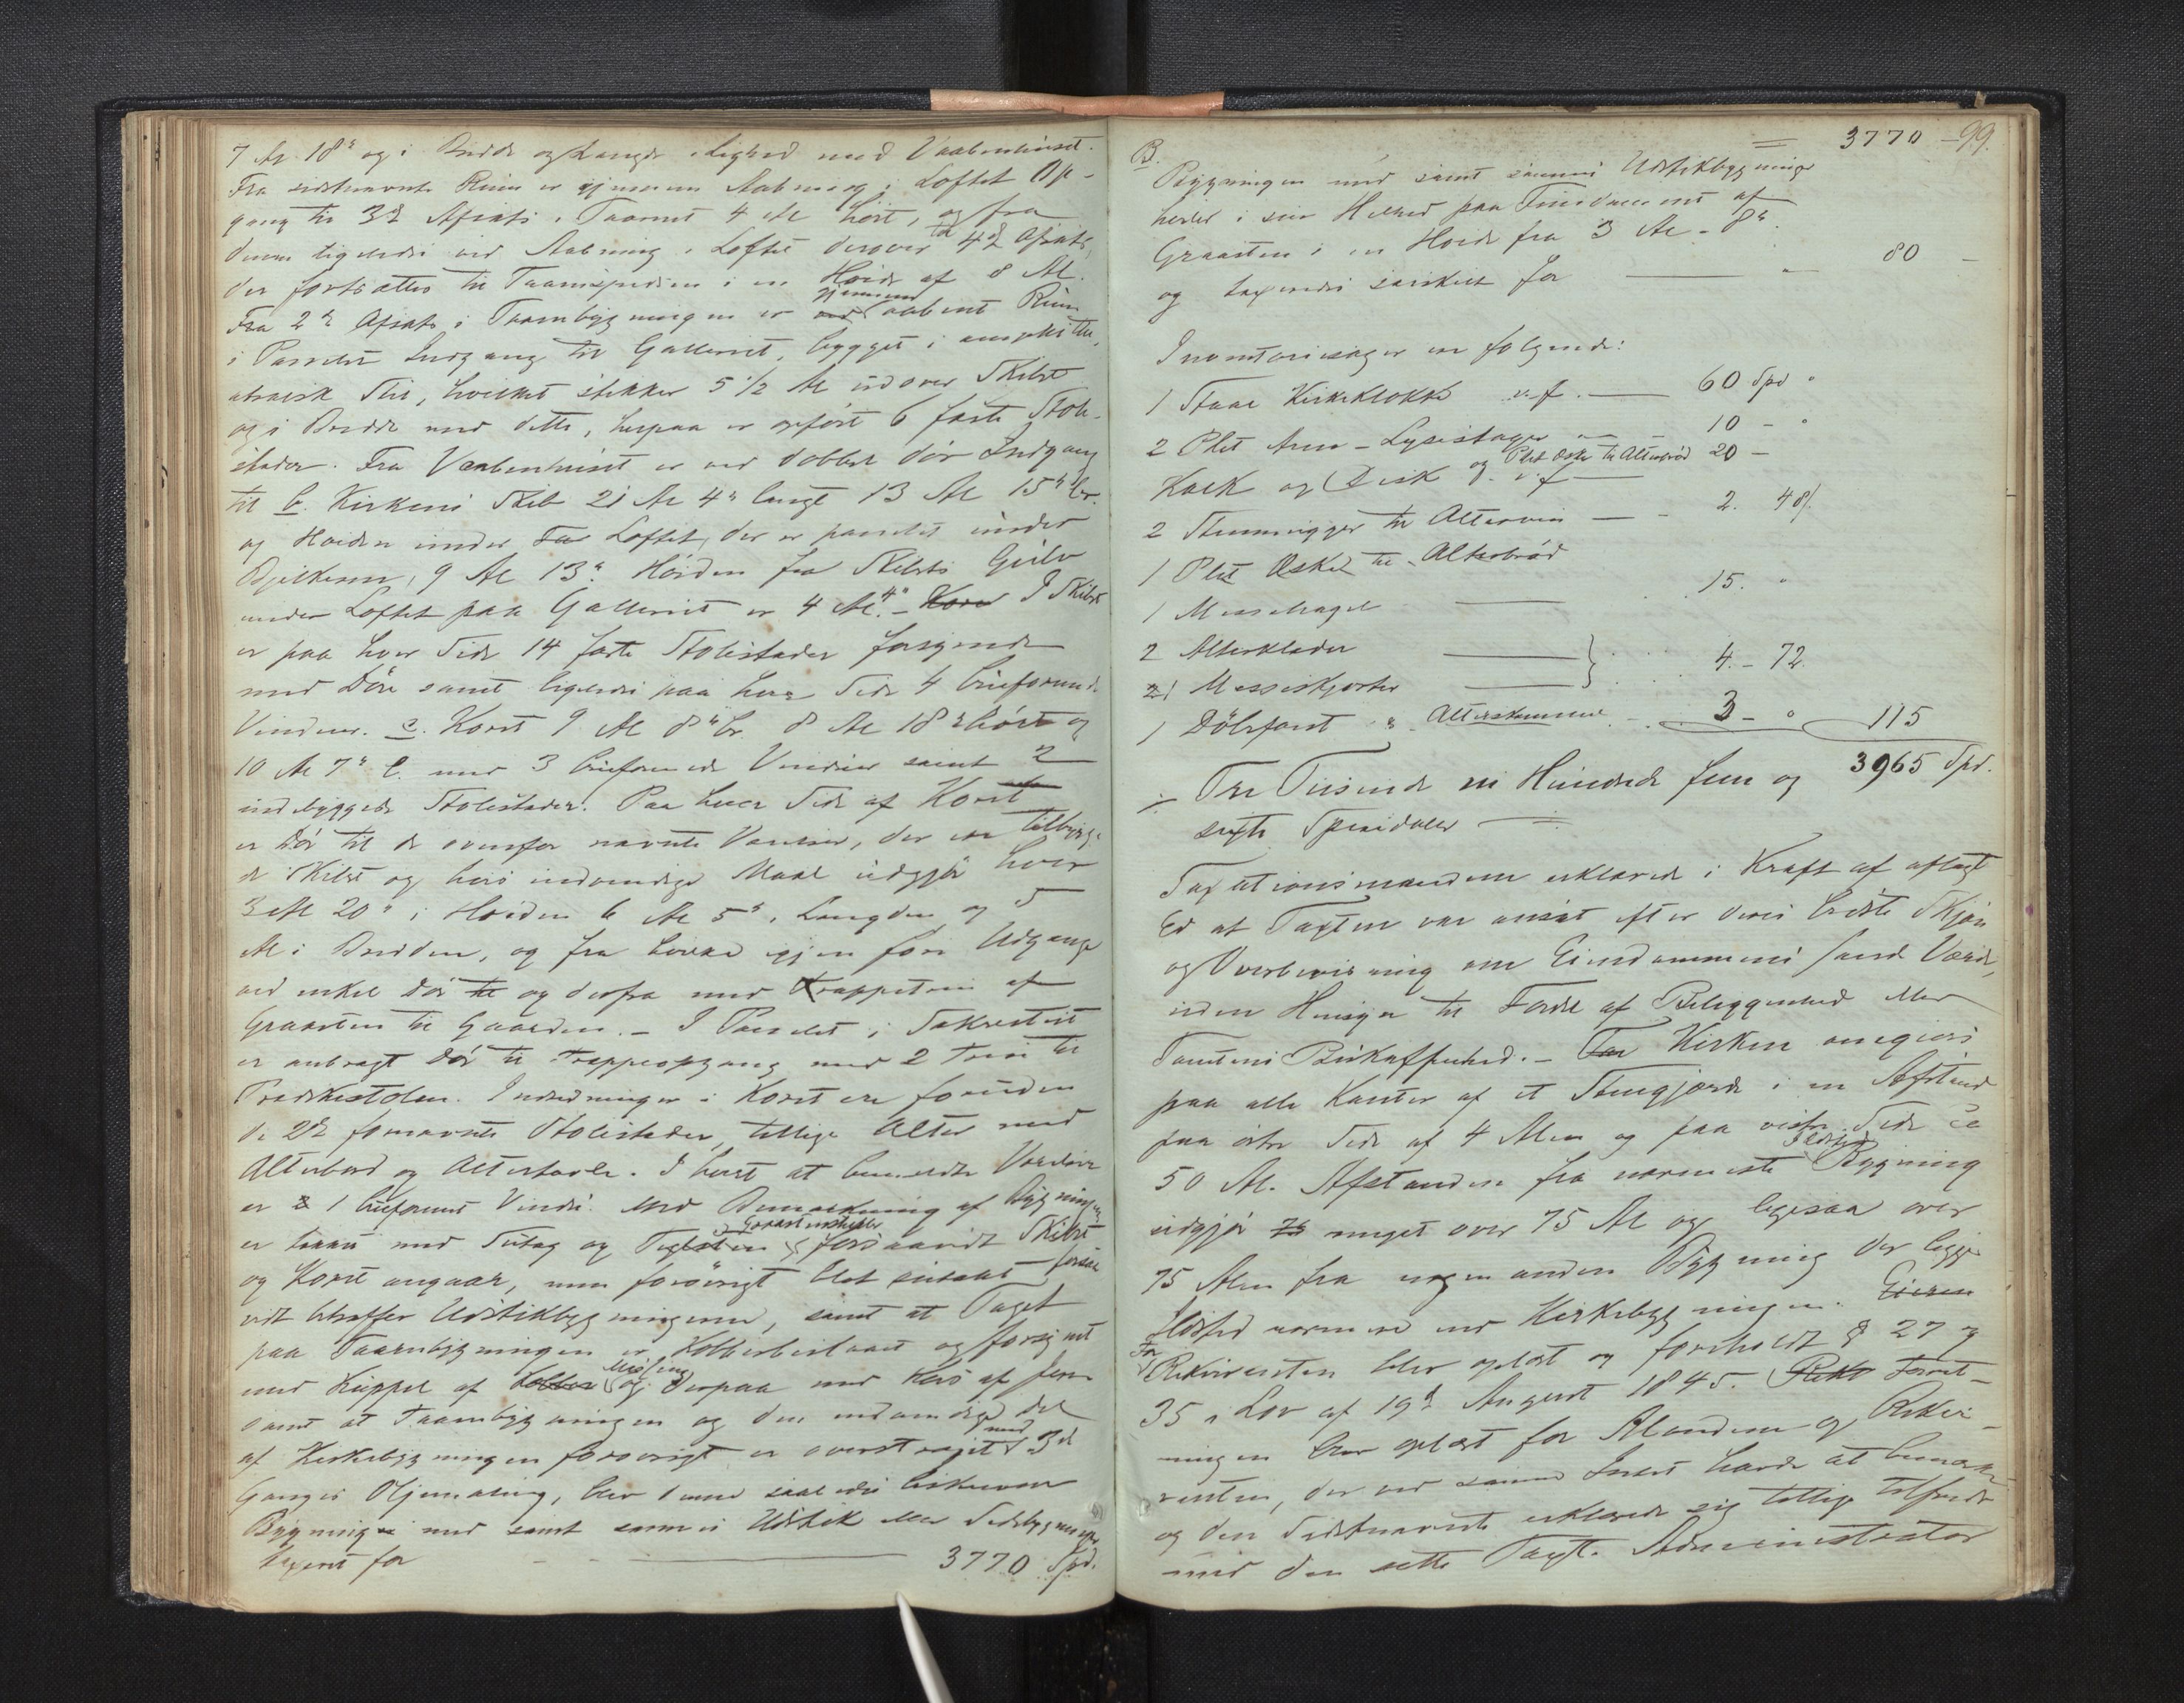 7 Al 18" og i Bredde og Længde i Lighed med Vaabenhuset.
Fra sidstnævnte Rum er gjennem Aabning i Loftet Op-
gang til 3de Afsats i Taarnet 4 Al høit, og fra
denne ligeledes ved Aabning i Loftet derover til 4de Afsats,
der fortsættes til Taarnspidsen i en Høide af 8 Al.
Fra 2de Afsats i Taarnbygningen er ved gjennem aabent Rum
i Panelet Indgang til Galleriet, bygget i amphithe-
atralsk Stil, hvilket stikker 5 1/2 Al udover Skibet
og i Bredde med dette, herpaa er opført 6 faste Stole-
stader. Fra Vaabenhuset er ved dobbel Dør Indgang
til b. Kirkens Skib 21 Al 4" langt 13 Al 15" br.
og Høiden under Loftet, der er panelet under
Bjelkerne, 9 Al 13". Høiden fra Skibets Gulv
under Loftet paa Galleriet er 4 Al. 4" - Koret I Skibet
er paa hver Side 14 faste Stolestader forsynede
med Døre samt ligeledes paa hver Side 4 bueformede
Vinduer. c. Koret 9 Al 8" br. 8 Al 18" høit og
10 Al 7" l. med 3 bueformede Vinduer samt 2
indbyggede Stolestader. Paa hver Side af Koret
er Dør til de ovenfor nævnte Værelser, der ere tilbygge-
de Skibet og hvis indvendige Maal udgjør hver
3 Al 20" i Høiden 6 Al 5" i Længden og 5
Al i Bredden, og fra hvilke igjen fører Udgange
ved enkel Dør til og derfra med Trappetrin af
Graasten til Gaarden. - I Panelet i Sakrestiet
er anbragt Dør til Trappeopgang med 2 Trin til
Prædikestolen. Indredninger i Koret ere foruden
de 2de fornævnte Stolestader, tillige Alter med
Alterbord og Altertavle. I hvert af bemeldte Værelser
er 2 1 bueformet Vindu. Med Bemærkning af Bygningen
er tækket med Sutag og Tegelsten og Graastensheller forsaavidt Skibet
og Koret angaar, men forøvrigt blot Sutækt forsaa-
vidt betræffer Udstikbygningerne, samt at Taget
paa Taarnbygningen er Kobberbeslaaet og forsynet
med Kuppel af Kobber Messing og derpaa med Kors af Jern
samt at Taarnbygningen og den indvendige Del
af Kirkebygningen forøvrigt er overstrøget med 3de
Ganges Oljemaling, blev denne saaledes beskrevne
Bygning med samt sammes Udstik eller Sidebygninger
taxeret for 3770 Spd.
3770 - 99.
B.
Bygningen med samt sammes Udstikbygninger
hviler i sin Helhed paa Fundament af
Graasten i en Høide fra 3 Al - 8"
og taxeredes særskilt for 80 -
Inventariesager ere følgende:
1 Støbt Kirkeklokke v.f. 60 Spd "
2 Plet Arm-Lysestager 10 - "
Kalk og Disk og Plet Æske til Alterbrød v.f. 20 -
2 Steenmugger til Altervin 2. 48 s.
1 Plet Æske til Alterbrød
1 Messehagel 15. "
2 Alterklæder
2 1 Messeskjorter } 4. - 72.
1 Døbefont " Alterskammel 3 - " 115
3965 Spd.
Tre Tusinde ni Hundrede fem og
sexti Speciedaler
Taxationsmændene erklærede i Kraft af aflagt
Ed at Taxten var ansat efter deres bedste Skjøn
og Overbeviisning om Eiendommens sande Værdi,
uden Hensyn til Fordel af Beliggenhed eller
Tomtens Beskaffenhed. - Kirken omgives
paa alle Kanter af et Steengjærde i en Afstand
paa østre Side af 4 Alen og paa vestre Side ca
50 Al. Afstanden fra nærmeste Ildsted Bygning
udgjør 75 noget over 75 Al og ligesaa over
75 Alen fra nogen anden Bygning der ligger
Ildsted nærmere end Kirkebygningen. Eieren
For Rekvirenten blev oplæst og foreholdt § 27 og
35 i Lov af 19de August 1845. Rekv Forret-
ningen blev oplæst for Mændene og Rekvi-
renten, der ved samme Intet havde at bemærke
og den Sidstnævnte erklærede sig tillige tilfreds
med den satte Taxt. Administrator